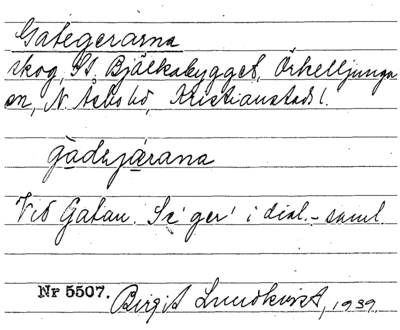 Gategerarna
skog, St. Bjälkabygget, Örkelljunga
sn, N. Åsbo hd, Kristianstads l.
gadejärana
Vid Gatan. Se 'ger' i dial.-saml.
Nr 5507. Birgit Lundkvist, 1939.